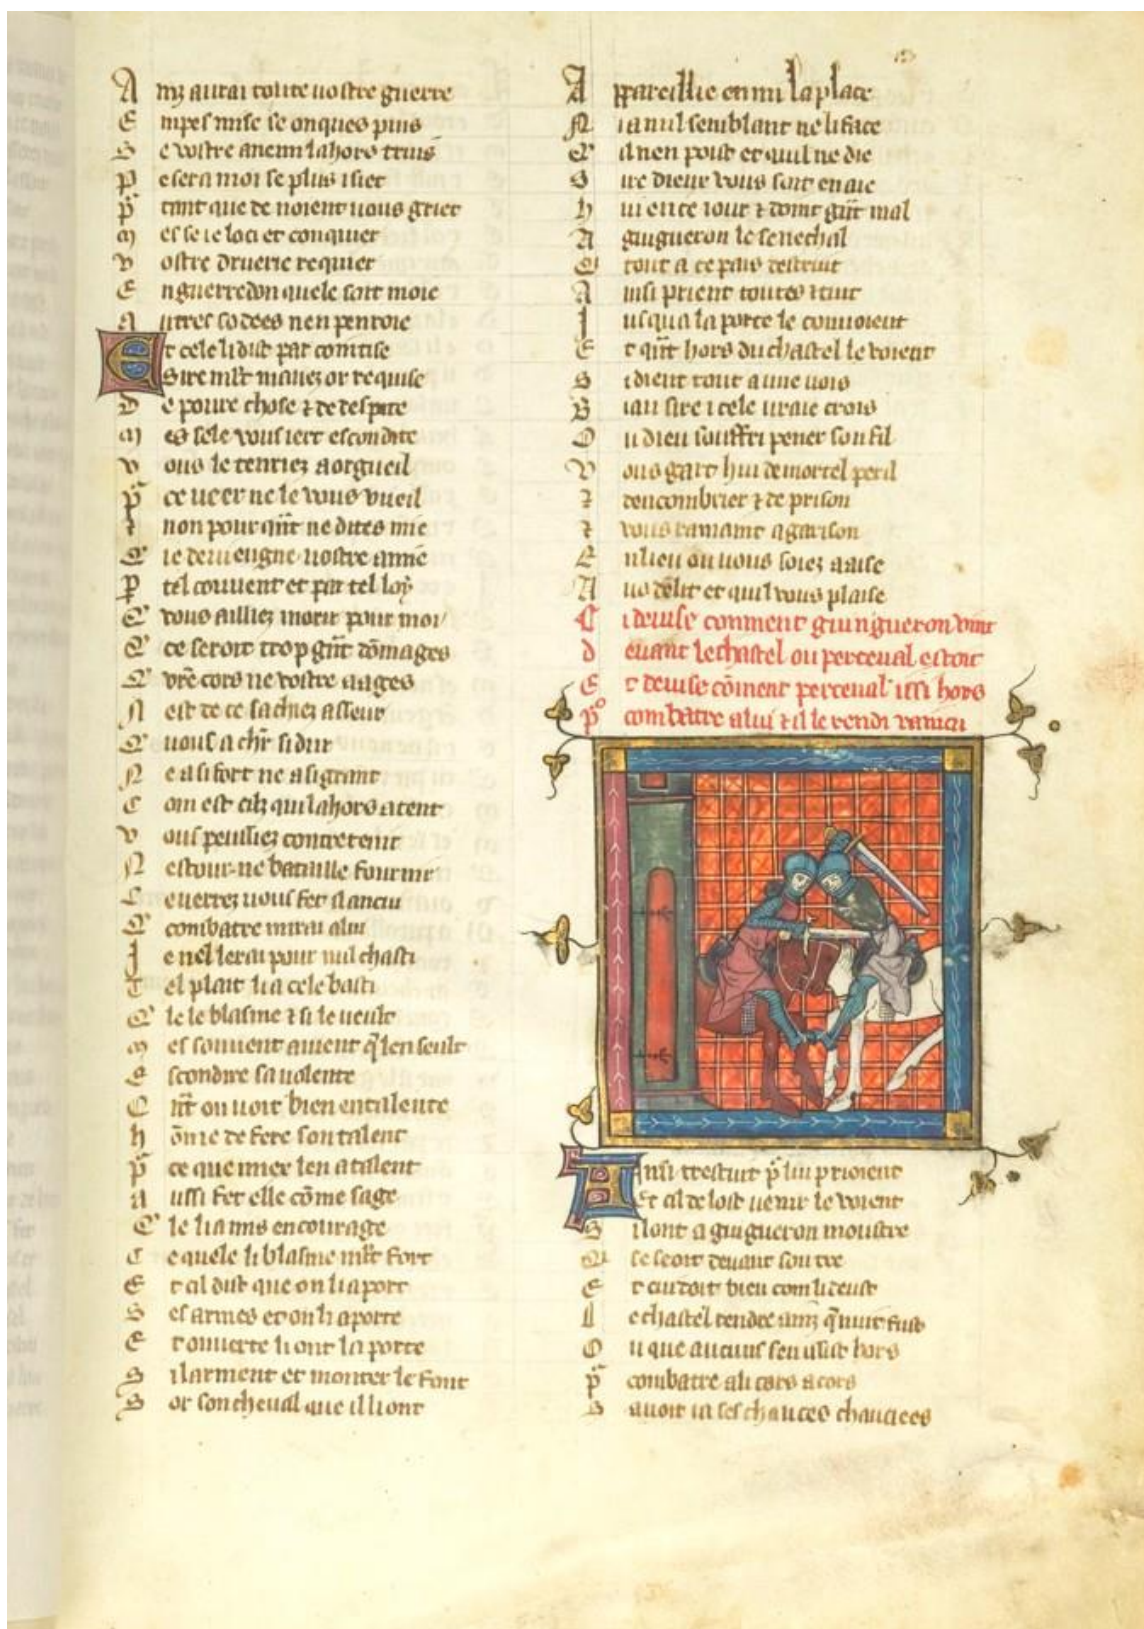 A mz aurai toute uostre guerre
E mpes mise se onques puis
S e vostre anemi la hors truis
P esera moi se plus i siet
P̃ tant que de noient uous griet
M es se ie loci et conquier
V ostre druerie requier
E n guerredon quele soit moie
A utres sodees nen penroie
E t cele li dist par cointise
Sire mlt̃ mauez or requise
D e poure chose ⁊ de despite
M es sele vous iert escondite
V ous le tenriez a orgueil
P̃ ce ueer ne le vous vueil
⁊ non pour qñt ne dites mie
Q̃ ie deuiengne uostre amie
P tel couuent et par tel loy
Q̃ vous ailliez morir pour moi
Q̃ ce seroit trop gñt dõmages
Q̃ vrẽ cors ne vostre aages
N est de ce sachiez asseur
Q̃ uous a chr̃ si dur
N e a si fort ne a si grant
C om est cilz qui la hors atent
V ous peussiez contretenir
N estour ne bataille fournir
C e uerrez uous fet il ancui
Q̃ combatre mirai a lui
J e nel lerai pour nul chasti
T el plait li a cele basti
Q̃ le le blasme ⁊ si le ueult
M es souuent auient q̃ len seult
E scondire sa uolente
Q̃ñt on uoit bien entalente
H õme de fere son talent
P̃ ce que miex len atalent
A ussi fet elle cõme sage
Q̃ le li a mis en courage
C e quele li blasme mlt̃ fort
E t cil dist que on li aport
S es armes et on li aporte
E t ouuerte li ont la porte
S i larment et monter le font
S or son cheual que il li ont
A ppareillie en mi la place
N i a nul semblant ne li face
Q̃ il nen poist et qui ne die
S ire dieux vous soit en aie
H ui en ce iour ⁊ doint gñt mal
A guigueron le senechal
Q̃ tout a ce pais destruit
A insi prient toutes ⁊ tuit
J usqua la porte le conuoient
E t qñt hors du chastel le voient
S i dient tout a une uois
B iau sire icele uraie crois
O u dieu souffri pener son fil
V ous gart hui de mortel peril
⁊ dencombrier ⁊ de prison
⁊ vous ramaint a garison
E n lieu ou uous soiez aaise
A uo delit et qui vous plaise
C i deuise comment guingueron vint
d euant le chastel ou perceual estoit
E t deuise cõment perceual issi hors
p̃ combatre a lui ⁊ il le rendi vaincu
A insi trestuit p̃ lui prioient
Et cil de lost uenir le voient
S i lont a guigueron moustre
Q̃ se seoit deuant son tre
E t cuidoit bien com li deust
L e chastel rendre ainz q̃ nuit fust
O u que aucuns sen issist hors
P̃ combatre a li cors a cors
S auoit ia ses chauces chauciees